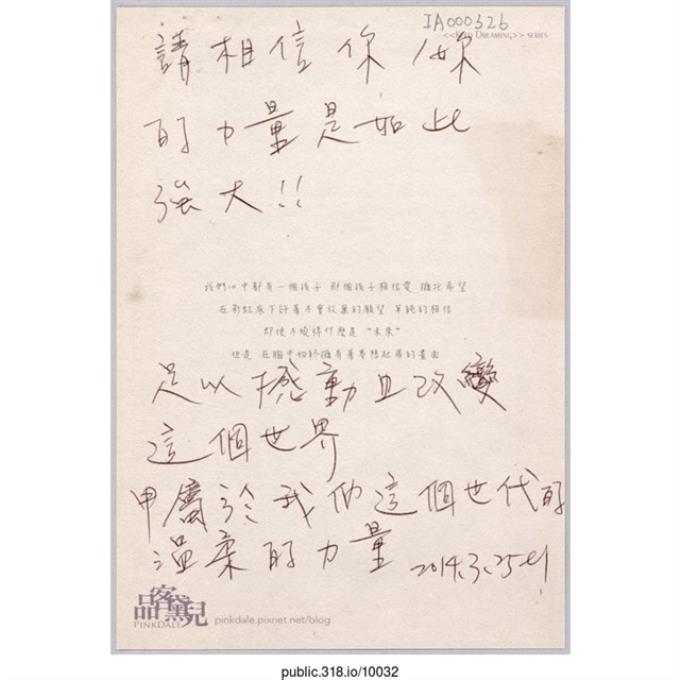 IA000326
DREAMING>> SERIES
請相信你/妳
的力量是如此
強大!!
我們心中都有一個孩子 那個孩子相信愛 擁抱希望
在彩虹底下許著不會放棄的願望 單純的相信
即使不曉得什麼是 "未來"
但是 在腦中始終擁有著夢想起飛的畫面
足以撼動且改變
這個世界
用屬於我們這個世代的
溫柔的力量 2014.3.25
品客黛兒
PINKDALE
pinkdale.pixnet.net/blog
public.318.io/10032